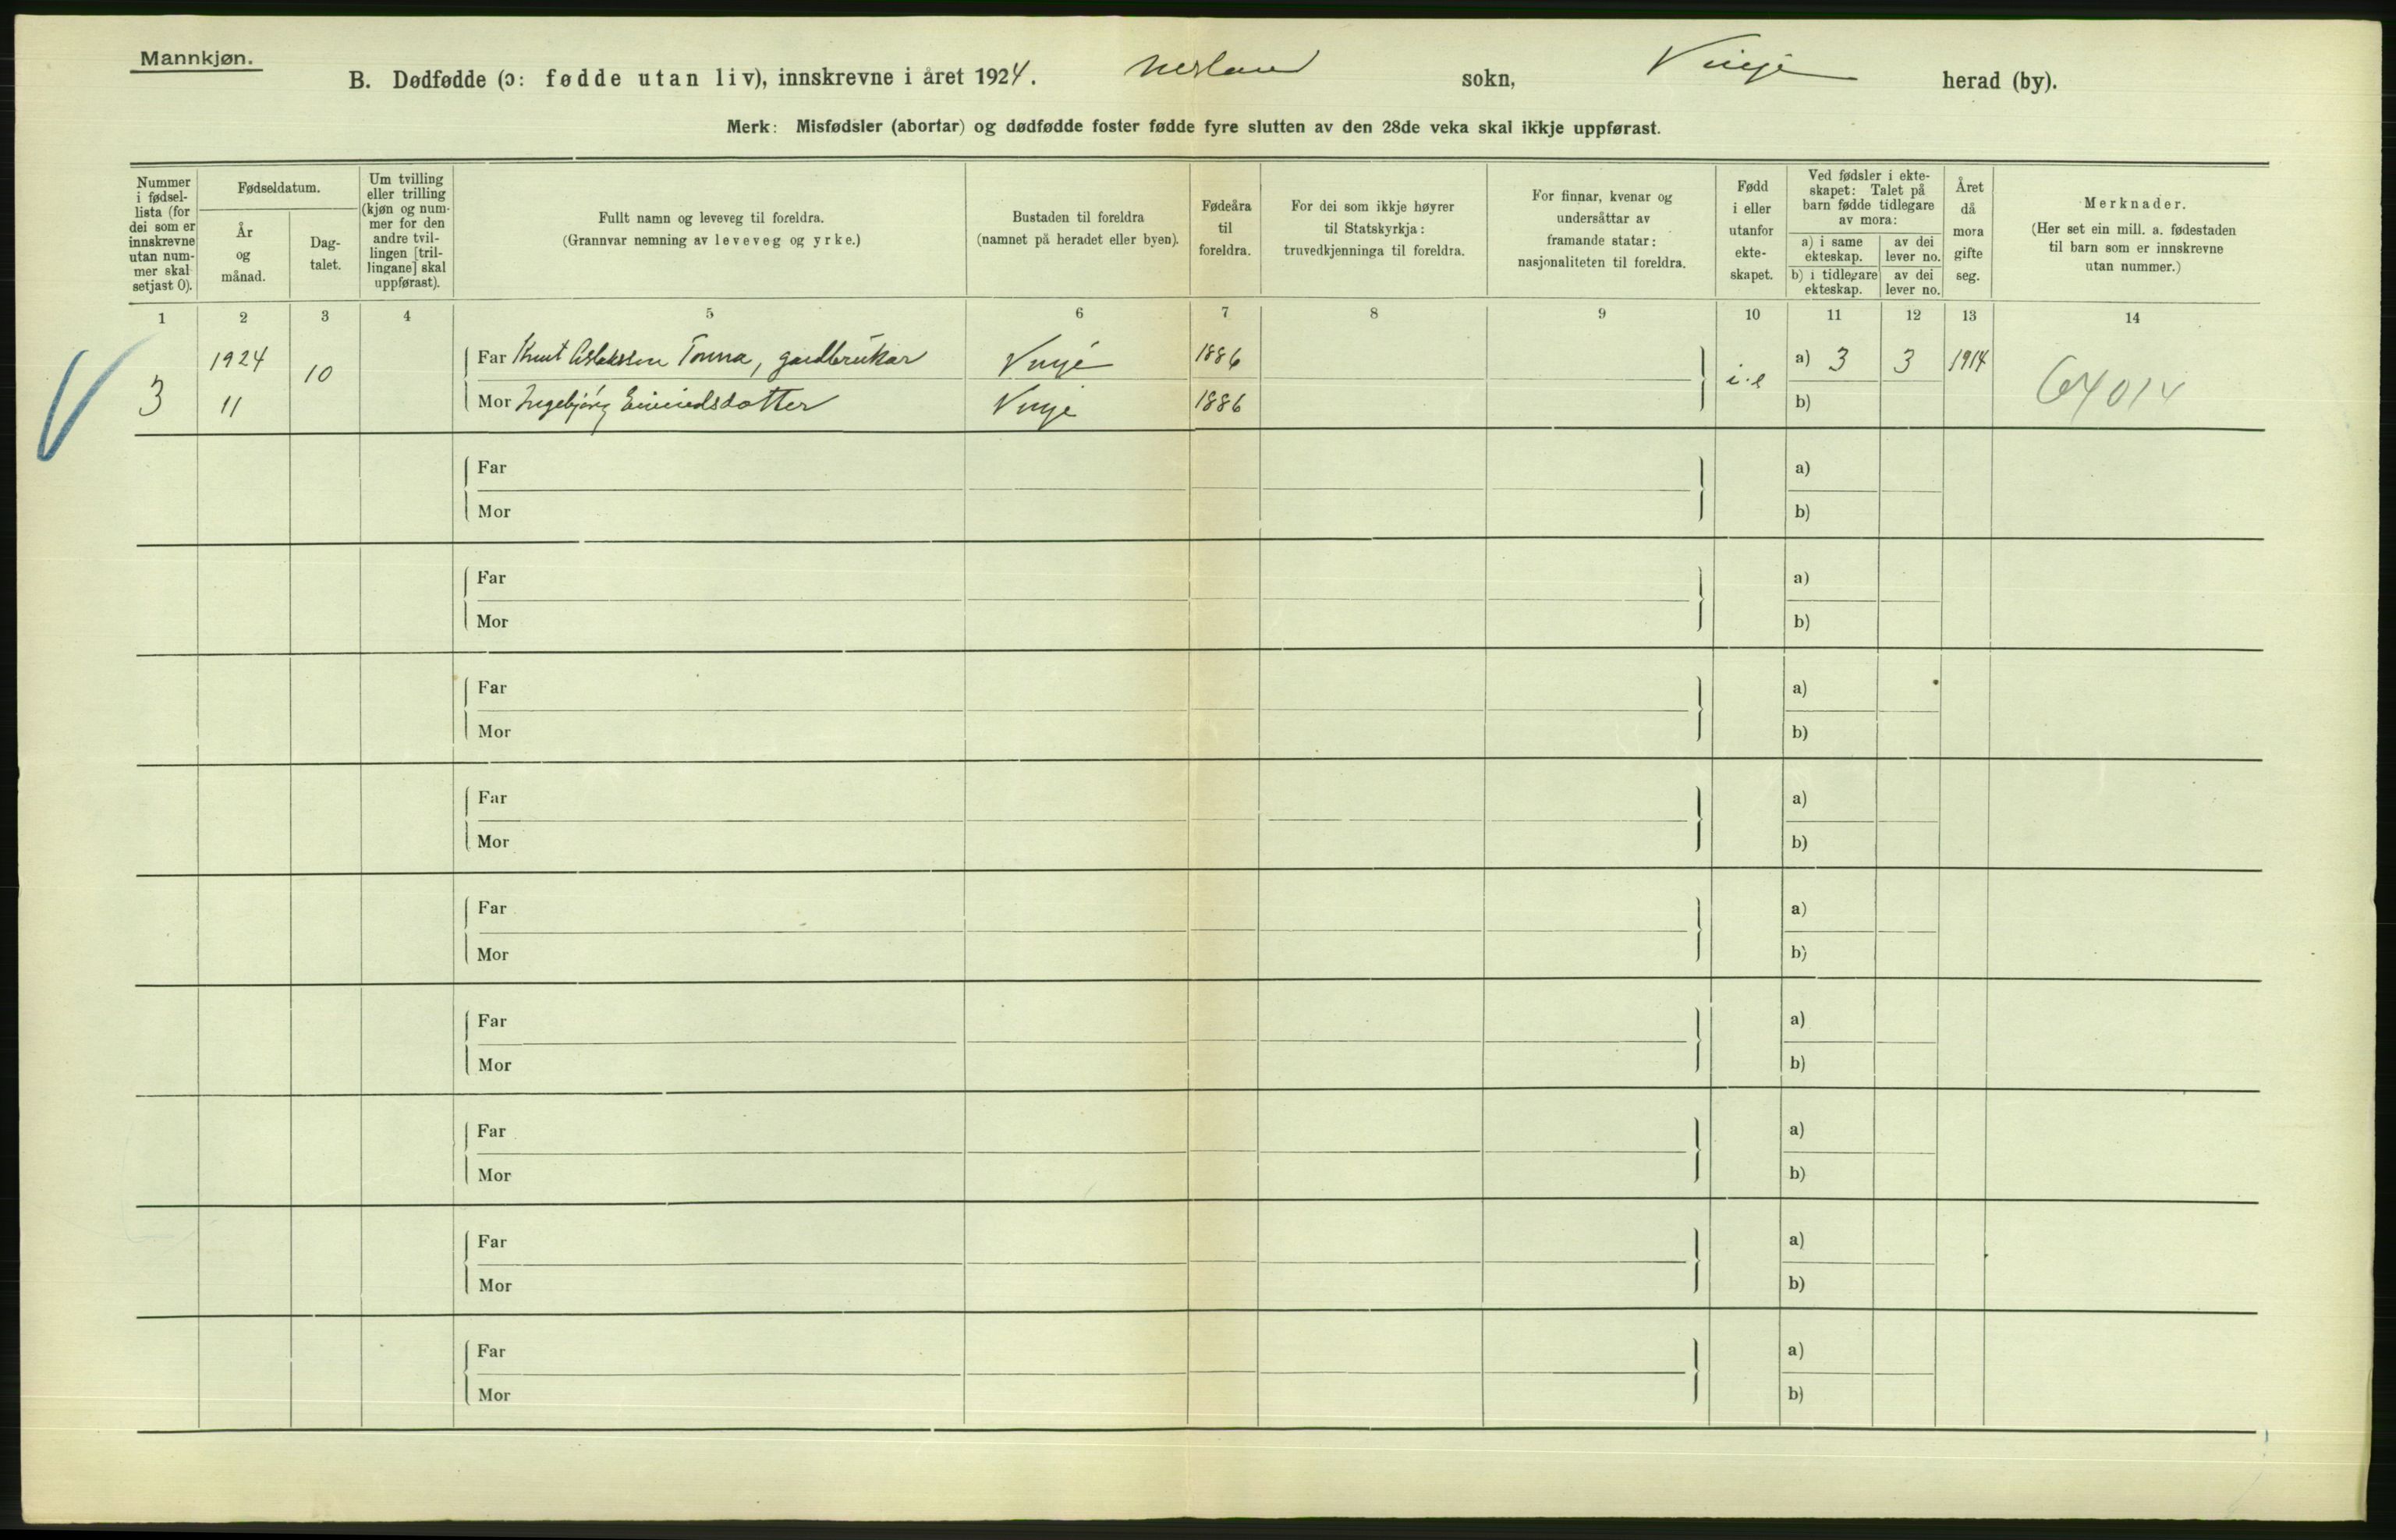 Mannkjøn.
B. Dødfødde (ɔ: fødde utan liv), innskrevne i året 1924. Nesland sokn, Vinje herad (by).
Merk: Misfødsler (abortar) og dødfødde foster fødde fyre slutten av den 28de veka skal ikkje uppførast.
Nummer
i fødsel-
lista (for
dei som er
innskrevne
utan num-
mer skal
setjast 0).
Fødseldatum.
År
og
månad.
Dag-
talet.
Um tvilling
eller trilling
(kjøn og num-
mer for den
andre tvil-
lingen [tril-
lingane] skal
uppførast).
Fullt namn og leveveg til foreldra.
(Grannvar nemning av leveveg og yrke.)
Bustaden til foreldra
(namnet på heradet eller byen).
Fødeåra
til
foreldra.
For dei som ikkje høyrer
til Statskyrkja:
truvedkjenninga til foreldra.
For finnar, kvenar og
undersåttar av
framande statar:
nasjonaliteten til foreldra.
Fødd
i eller
utanfor
ekte-
skapet.
Ved fødsler i ekte-
skapet: Talet på
barn fødde tidlegare
av mora:
a) i same
ekteskap.
av dei
lever no.
b) i tidlegare
ekteskap.
av dei
lever no.
Året
då
mora
gifte
seg.
Merknader.
(Her set ein mill. a. fødestaden
til barn som er innskrevne
utan nummer.)
1 2 3 4 5 6 7 8 9 10 11 12 13 14
1924 10 Far Knut Aslaksson Tonna, gardbrukar Vinje 1886 i.e a) 3 3 1914
3 11 Mor Ingebjørg Eivindsdotter Vinje 1886 b) 64014
Far a)
Mor b)
Far a)
Mor b)
Far a)
Mor b)
Far a)
Mor b)
Far a)
Mor b)
Far a)
Mor b)
Far a)
Mor b)
Far a)
Mor b)
Far a)
Mor b)